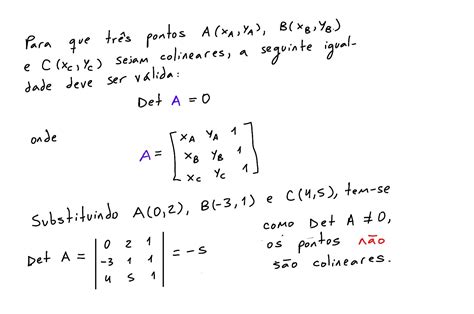 Para que três pontos A(xA, yA), B(xB, yB)
e C(xC, yC) sejam colineares, a seguinte igual-
dade deve ser válida:
Det A = 0
onde
A = [xA yA 1
xB yB 1
xC yC 1]
Substituindo A(0,2), B(-3,1) e C(4,5), tem-se
Det A = |0 2 1
-3 1 1
4 5 1| = -5
como Det A ≠ 0,
os pontos não
são colineares.